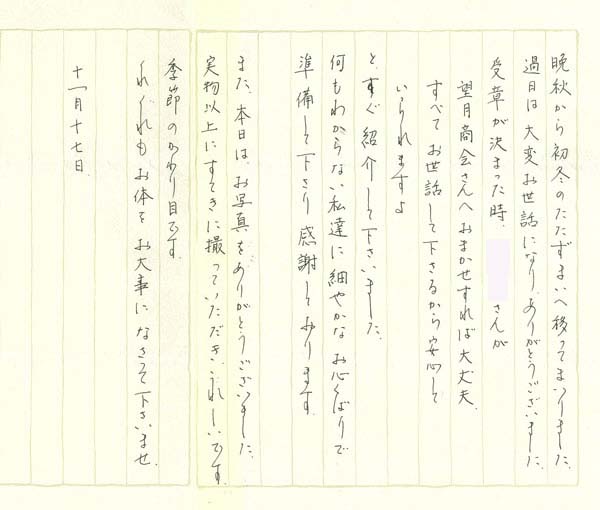 晩秋から初冬のたたずまいへ移ってまいりました。
過日は大変お世話になり、ありがとうございました。
受章が決まった時、　　さんが
望月商会さんへおまかせすれば大丈夫、
すべてお世話して下さるから安心して
いられますよ
と、すぐ紹介して下さいました。
何もわからない私達に細やかなお心くばりで
準備して下さり感謝しております。
また、本日は、お写真をありがとうございました。
実物以上にすてきに撮っていただき、うれしいです。
季節のかわり目です。
くれぐれもお体をお大事になさって下さいませ。
十一月十七日